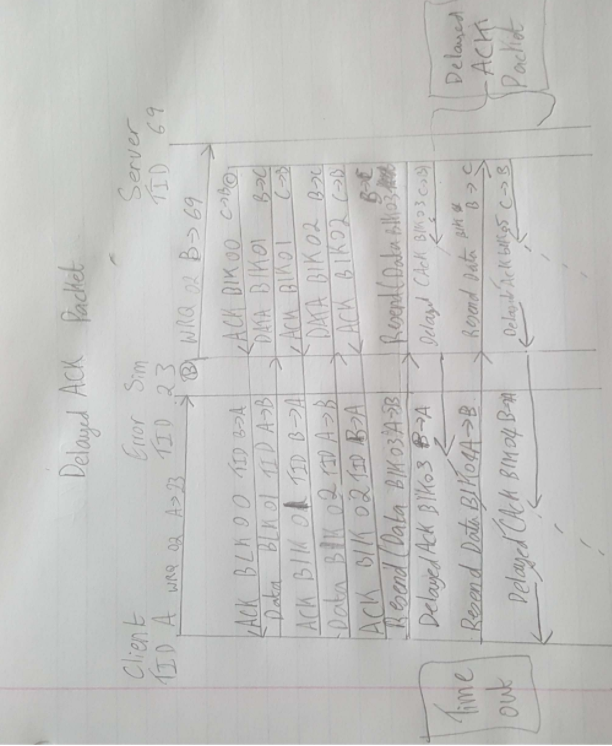 Delayed ACK Packet
Client
TID A
Error Sim
TID 23
Server
TID 69
WRQ 02 A→23
(B) WRQ 02 B→69
ACK BLK 00 TID B→A
ACK BLK00 C→B
Data BLK 01 TID A→B
DATA BLK01 B→C
ACK BLK 01 TID B→A
ACK BLK01 C→B
Data BLK 02 TID A→B
DATA BLK02 B→C
ACK BLK 02 TID B→A
ACK BLK02 C→B
Resend (Data BLK03 A→B
Resend (Data BLK03 B→C
Delayed ACK BLK03 B→A
Delayed (ACK BLK03 C→B)
Resend Data BLK04 A→B
Resend Data BLK B→C
Delayed (ACK BLK04 B→A
Delayed ACK C→B
Time
out
Delayed
ACK
Packet